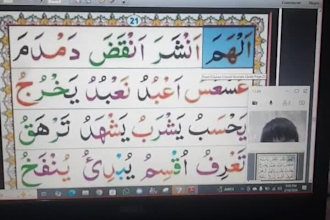 21
اَلْهَمَ اَنْشَرَ اَنْقَضَ دَمْدَمَ
عَسْعَسَ اَعْبُدُ نَعْبُدُ يَخْرُجُ
يَحْسَبُ يَشْرَبُ يَشْهَدُ تَرْهَقُ
تَعْرِفُ اُقْسِمُ يُبْدِئُ يُنْفَخُ